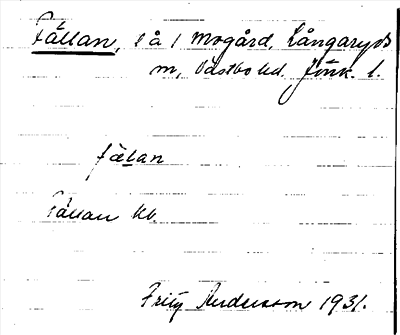 Fällan, s å / Mogård, Långaryds
m, Västbo hd. Jönk. l.
fälan
Fällan kb
Fritz Andersson 1931.